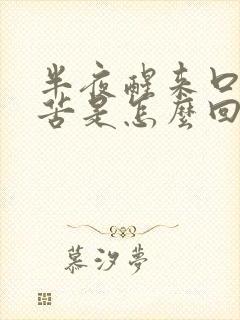 半夜醒来口
苦是怎麼回
慕汐夢